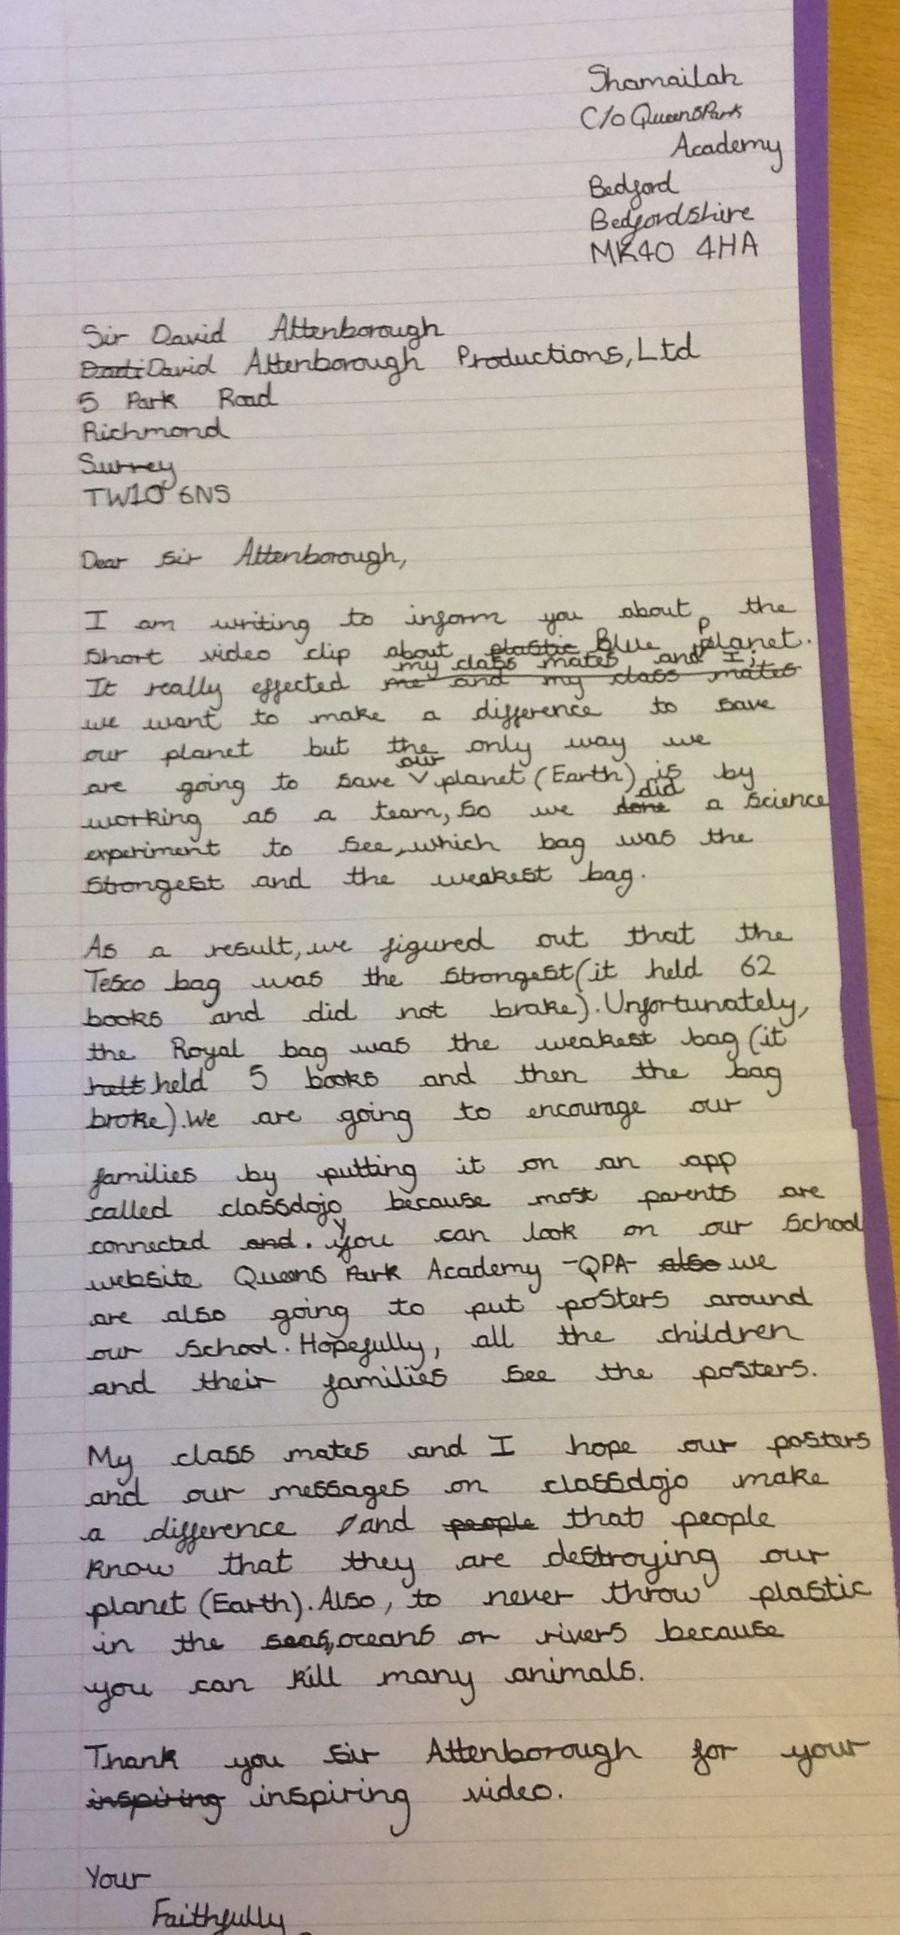 Shamailah
C/o Queens Park
Academy
Bedford
Bedfordshire
MK40 4HA
Sir David Attenborough
David Attenborough Productions, Ltd
5 Park Road
Richmond
Surrey
TW10 6NS
Dear sir Attenborough,
I am writing to inform you about the
short video clip about plastic Blue planet.
my class mates and I;
It really effected me and my class mates
we want to make a difference to save
our planet but the only way we
are going to save our planet (Earth) is by
working as a team, so we done did a science
experiment to see, which bag was the
strongest and the weakest bag.
As a result, we figured out that the
Tesco bag was the strongest (it held 62
books and did not brake). Unfortunately,
the Royal bag was the weakest bag (it
helt held 5 books and then the bag
broke). We are going to encourage our
families by putting it on an app
called classdojo because most parents are
connected and. You can look on our school
website Queens Park Academy -QPA- also we
are also going to put posters around
our school. Hopefully, all the children
and their families see the posters.
My class mates and I hope our posters
and our messages on classdojo make
a difference and people that people
know that they are destroying our
planet (Earth). Also, to never throw plastic
in the seas, oceans or rivers because
you can kill many animals.
Thank you sir Attenborough for your
inspiring inspiring video.
Your
Faithfully